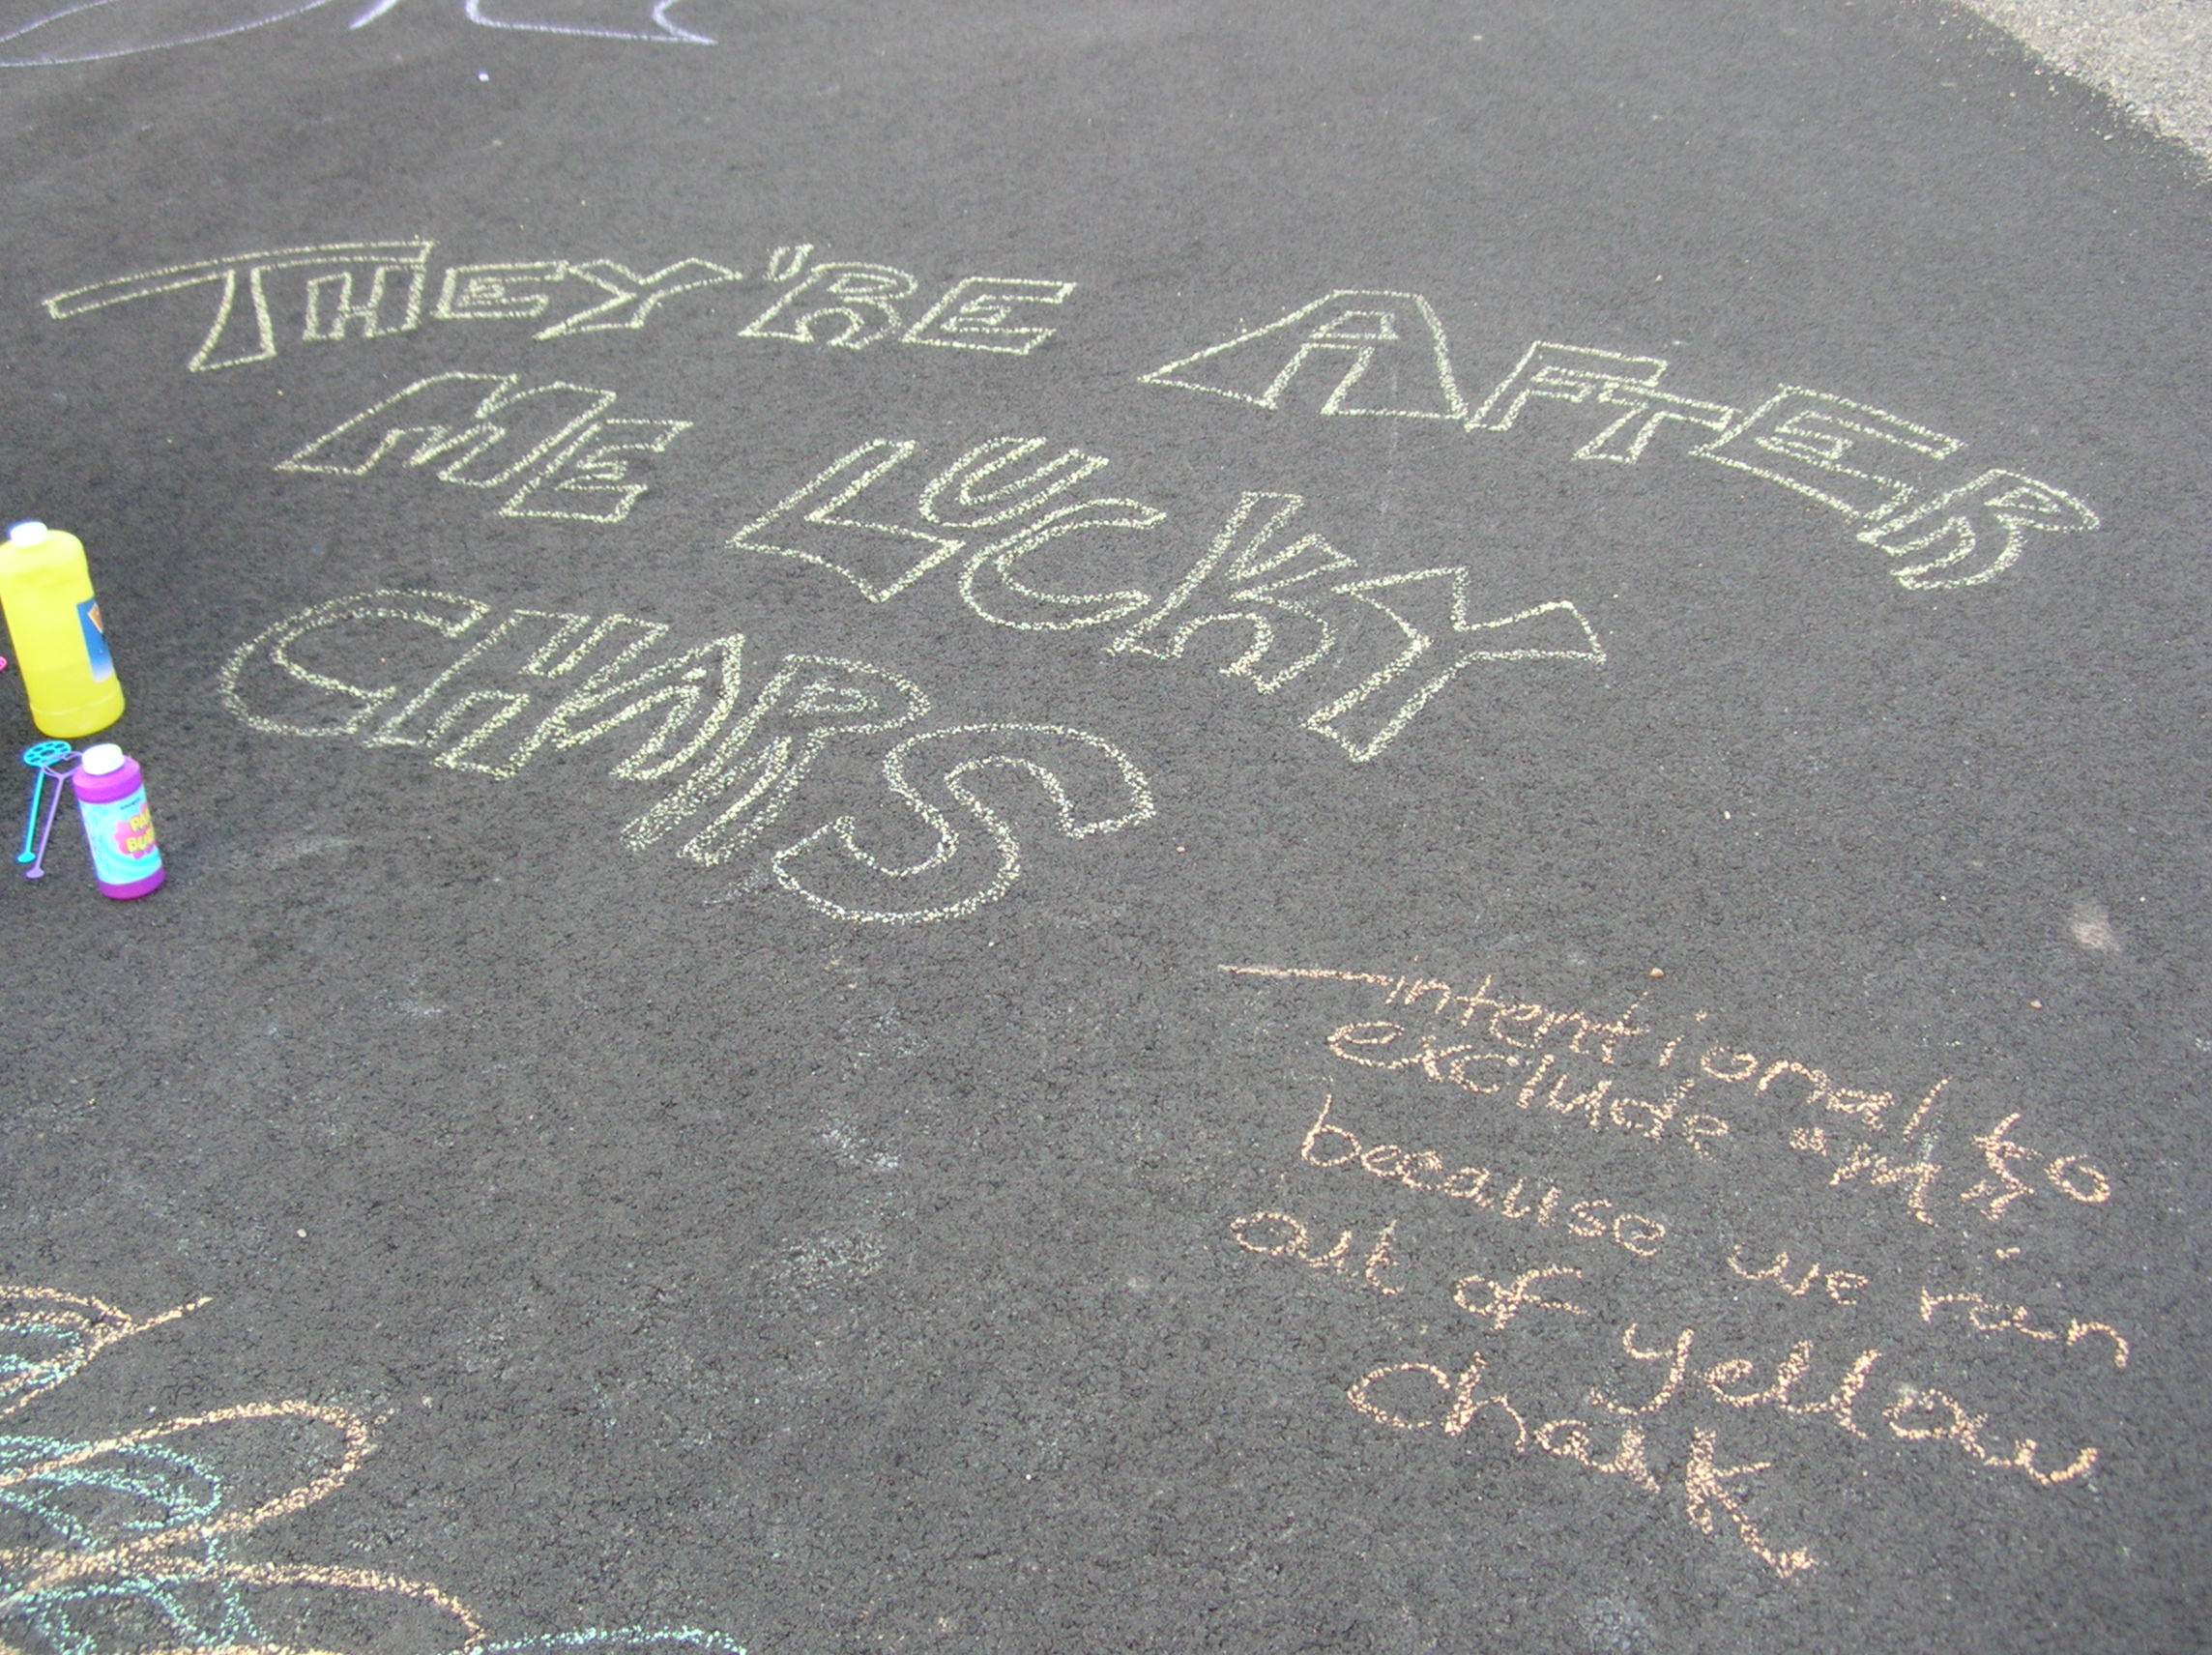 THEY'RE AFTER
ME LUCKY
CHARS
—intentional to
exclude "m"
because we ran
out of yellow
chalk